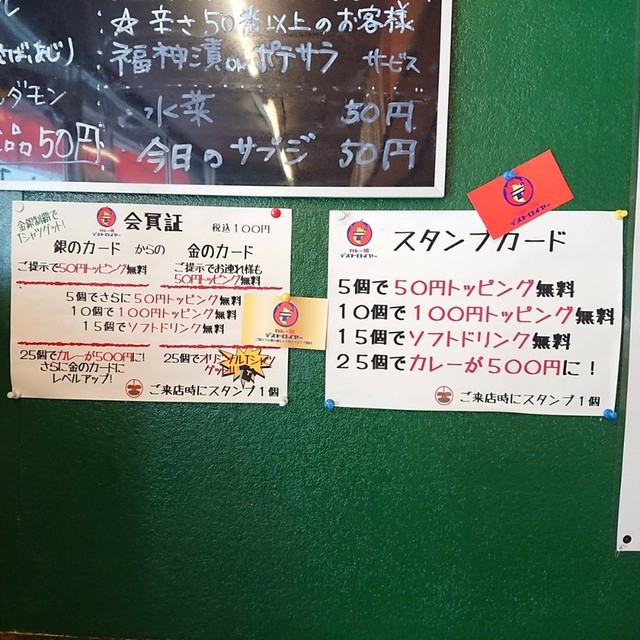 ☆辛さ50番以上のお客様
福神漬orポテサラ サービス
さば,あじり
ダモン
水菜 50円
品50円
今日のサブジ 50円
金銀制覇で
Tシャツゲット!
カレー魂
デストロイヤー
会員証 税込100円
銀のカード からの 金のカード
ご提示で50円トッピング無料
ご提示でお連れ様も
50円トッピング無料
5個でさらに50円トッピング無料
10個で100円トッピング無料
15個でソフトドリンク無料
25個でカレーが500円に!
さらに金のカードに
レベルアップ!
25個でオリジナルTシャツ
ゲット!!
ご来店時にスタンプ1個
カレー魂
デストロイヤー
デストロイヤー
カレー魂
デストロイヤー
スタンプカード
5個で50円トッピング無料
10個で100円トッピング無料
15個でソフトドリンク無料
25個でカレーが500円に!
ご来店時にスタンプ1個